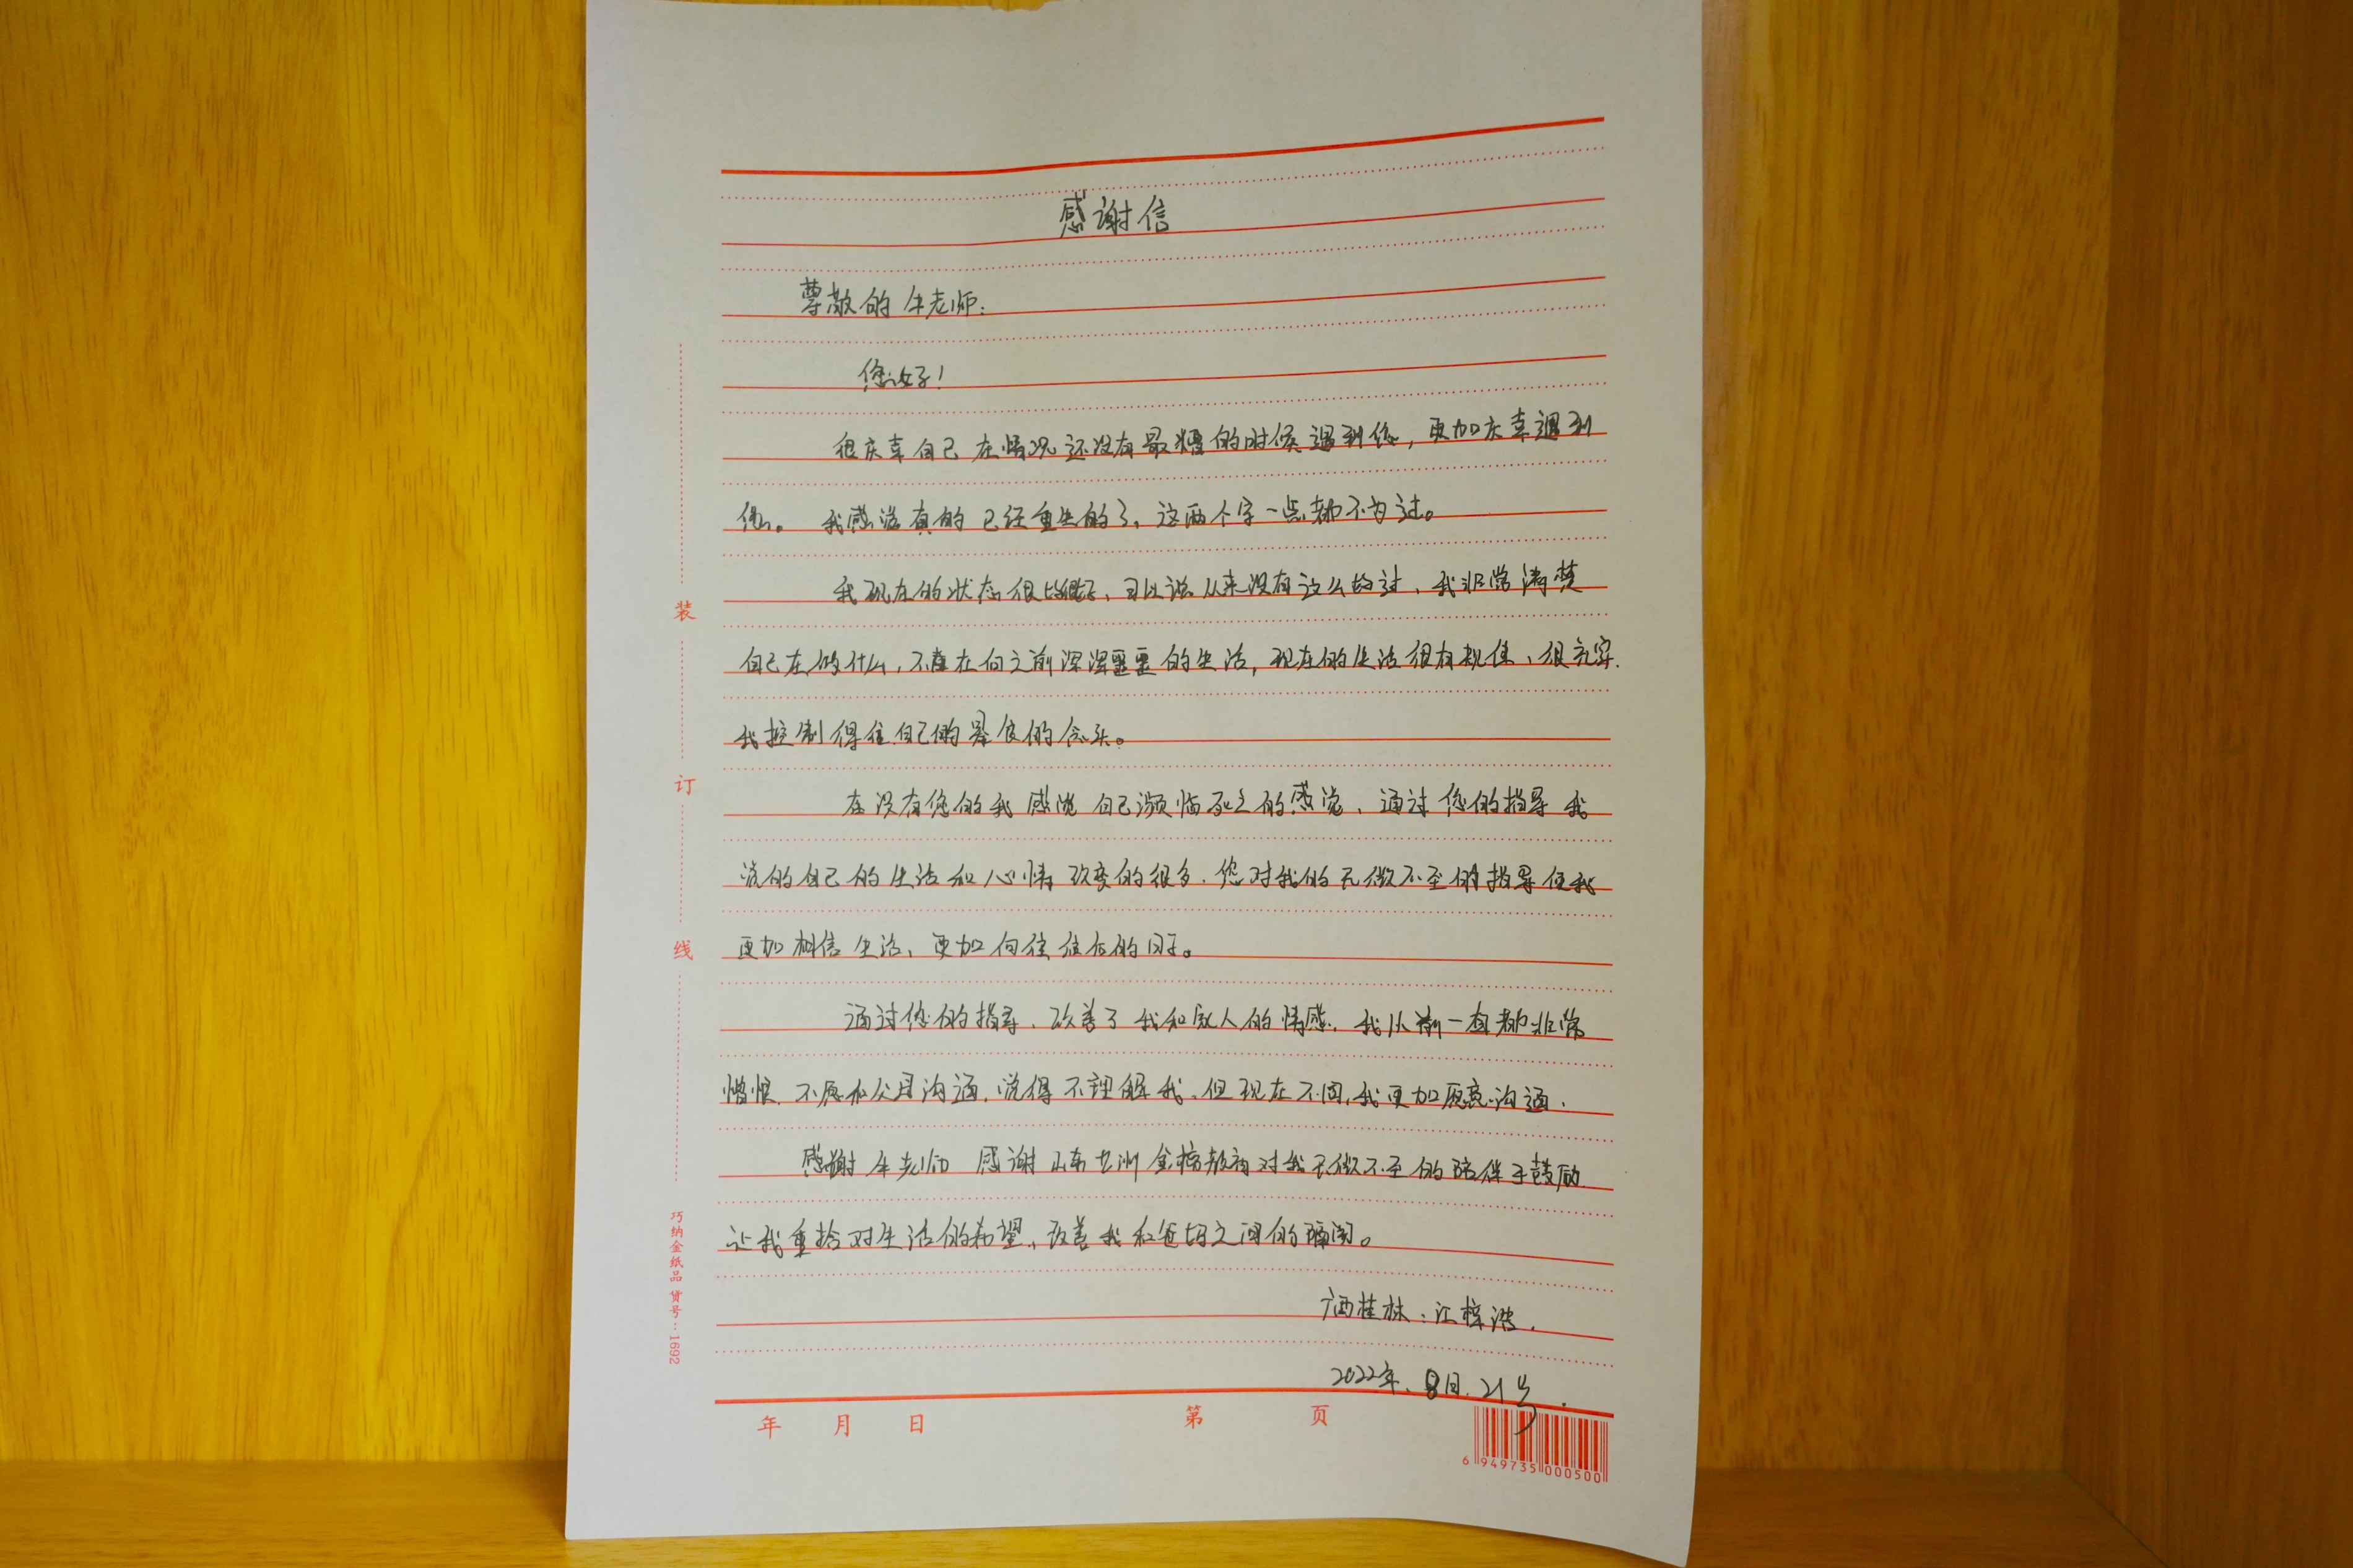 感谢信
尊敬的牛老师:
您好!
很庆幸自己在情况还没有最糟的时候遇到您,更加庆幸遇到
您。我感觉真的已经重生的了、这两个字一点都不为过。
我现在的状态很好、可以说从来没有这么好过、我非常清楚
自己在做什么,不存在向之前浑浑噩噩的生活,现在的生活很有规律、很充实.
我控制得住自己的暴食的念头。
在没有您的我感觉自己濒临死亡的感觉、通过您的指导我
觉的自己的生活和心情改变的很多.您对我的无微不至的指导使我
更加相信生活、更加向往往后的日子。
通过您的指导、改善了我和家人的情感、我从前一直都非常
憎恨 不愿和父母沟通.觉得不理解我.但现在不同,我更加愿意沟通.
感谢牛老师 感谢山东 金榜教育对我无微不至的陪伴于鼓励
让我重拾对生活的希望、改善我和爸妈之间的隔阂。
广西桂林:江梓
2022年.8月.21号.
装
订
线
巧纳金纸品 货号:1692
年 月 日 第 页
6 949735 000500